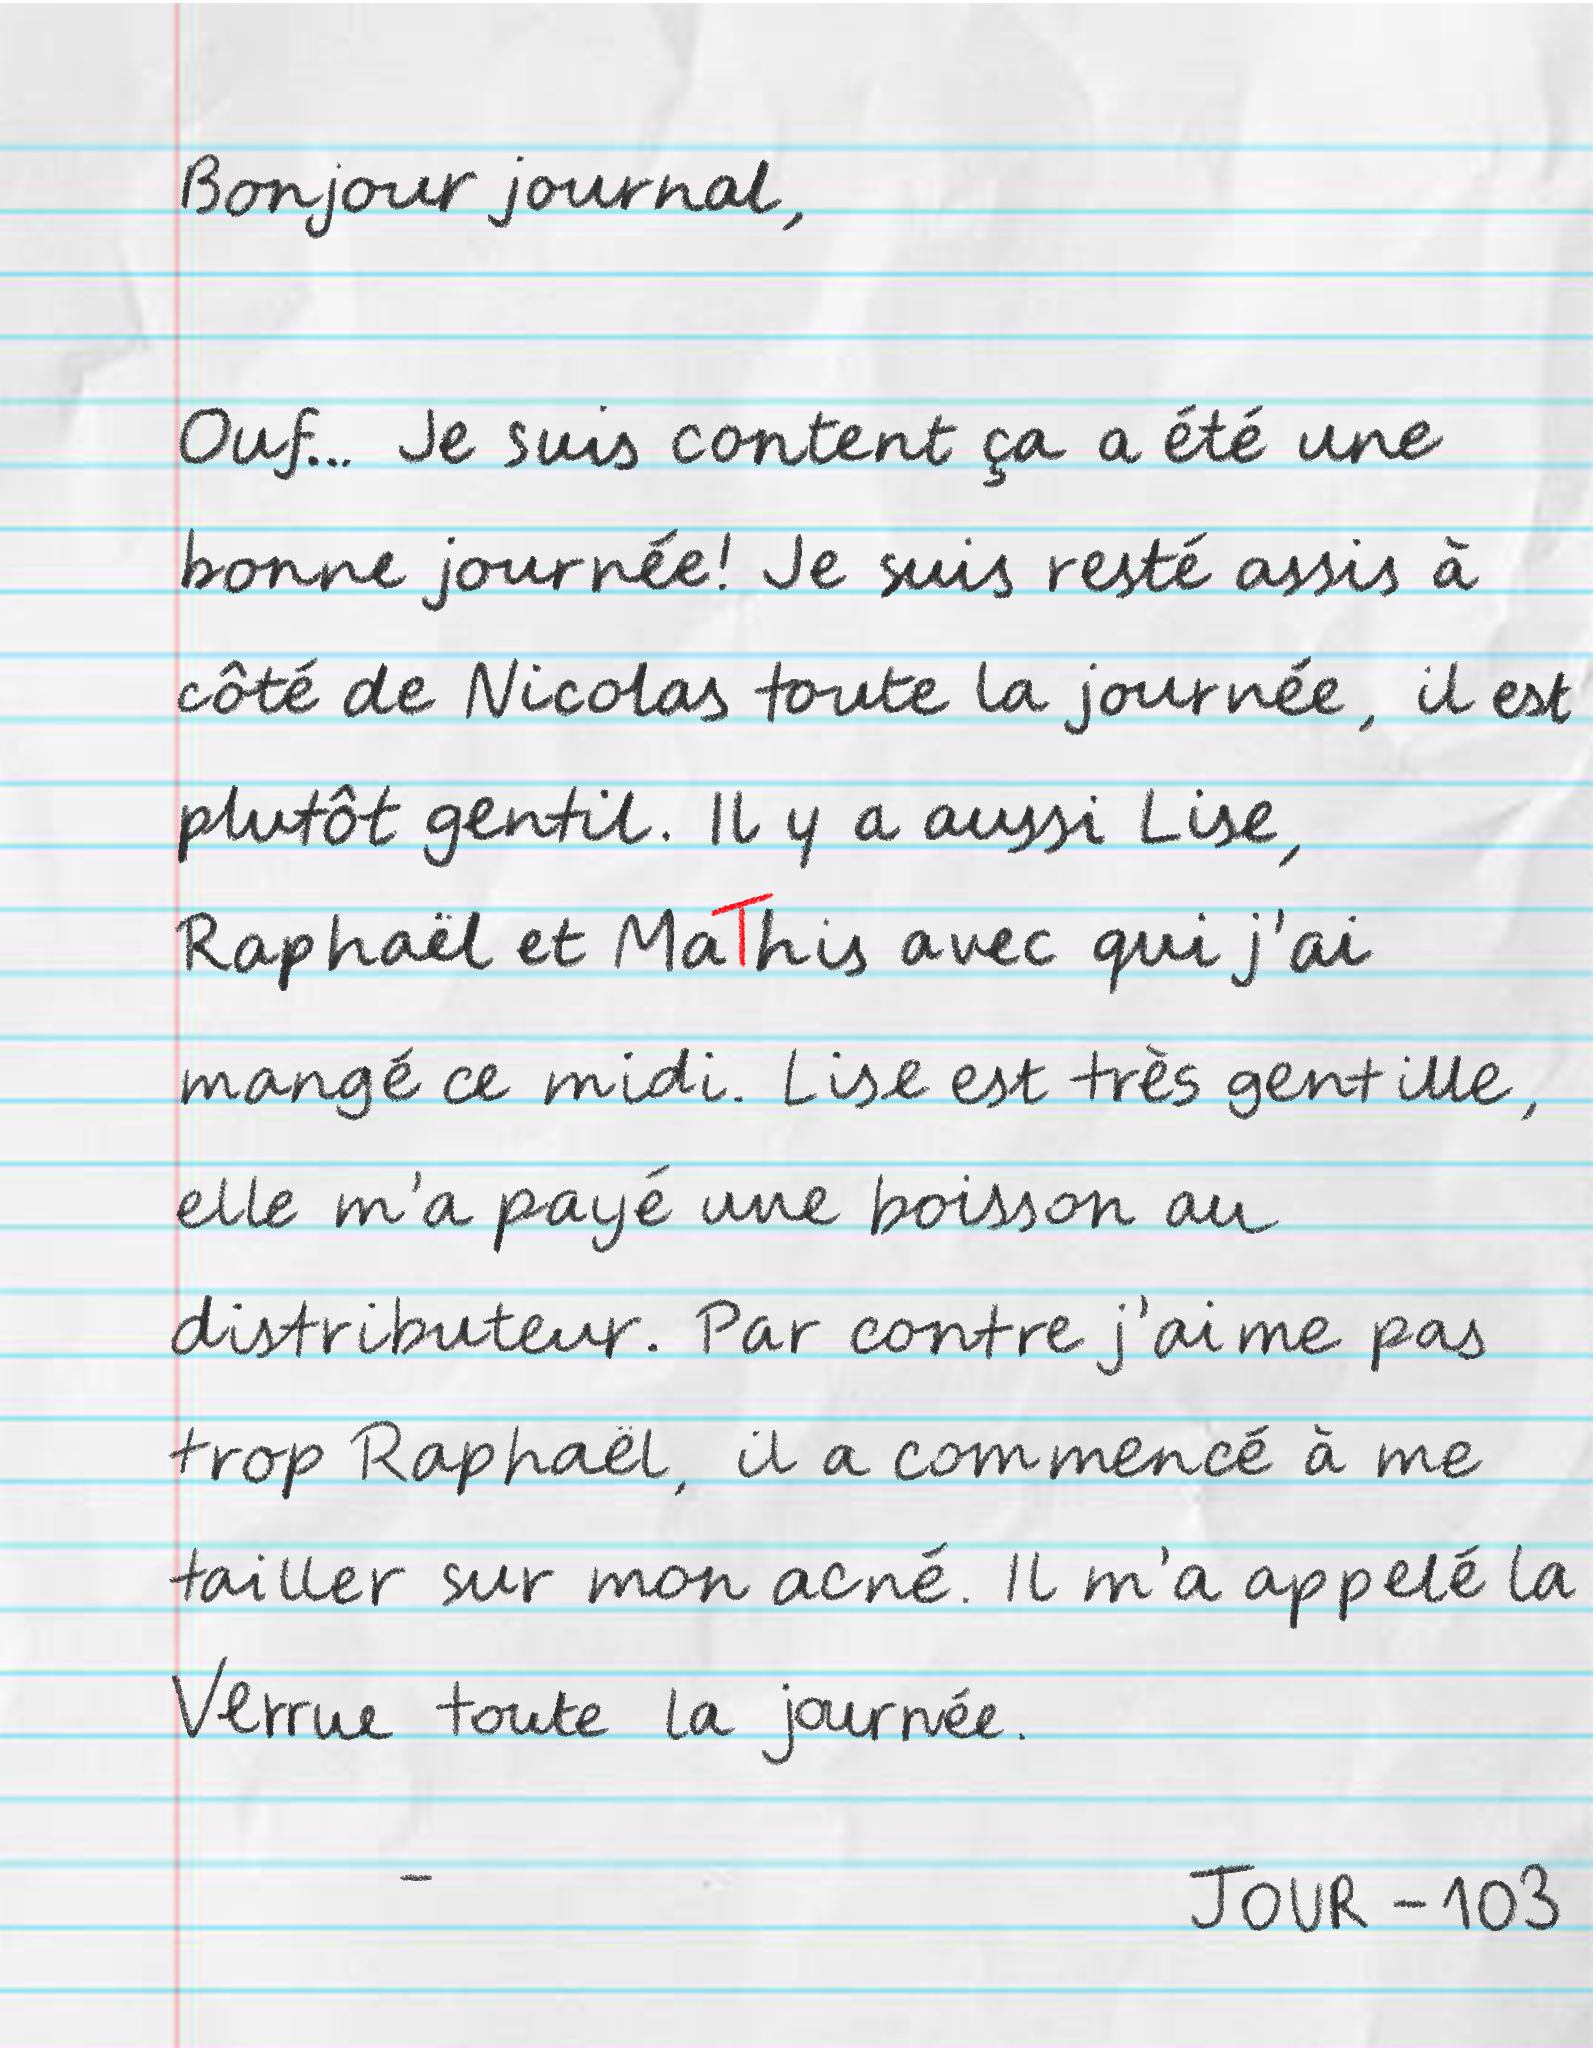 Bonjour journal,
Ouf... Je suis content ça a été une
bonne journée! Je suis resté assis à
côté de Nicolas toute la journée, il est
plutôt gentil. Il y a aussi Lise,
Raphaël et MaThis avec qui j'ai
mangé ce midi. Lise est très gentille,
elle m'a payé une boisson au
distributeur. Par contre j'aime pas
trop Raphaël, il a commencé à me
tailler sur mon acné. Il m'a appelé la
Verrue toute la journée.
- JOUR - 103